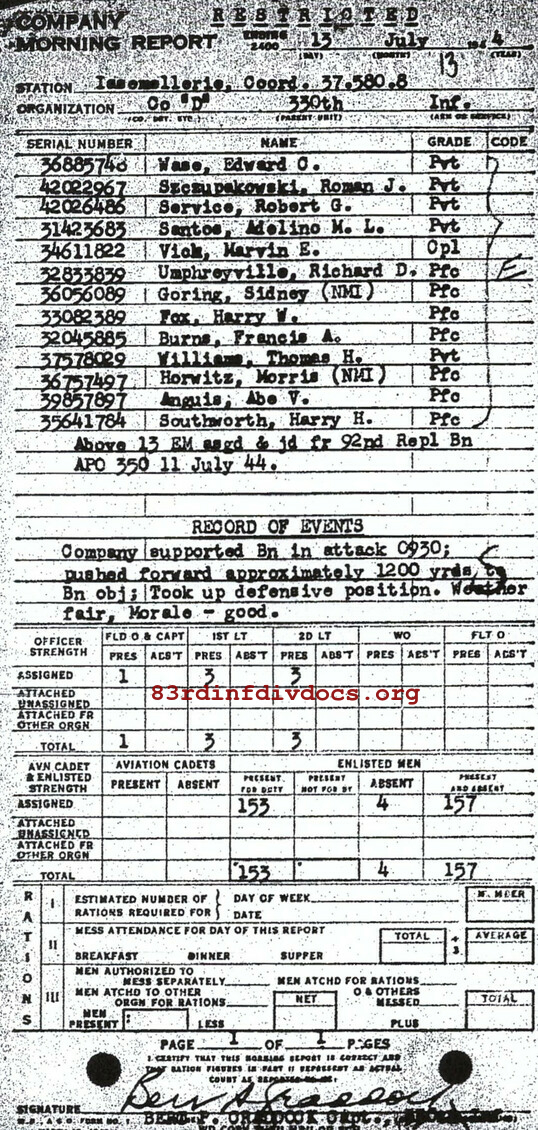 RESTRICTED
COMPANY
MORNING REPORT ENDING 2400 13 July 194 4
(DAY) (MONTH) (YEAR)
13
STATION Coord. 37.580.8
ORGANIZATION Co "D" 330th Inf.
(CO. DET. ETC.) (PARENT UNIT) (ARM OR SERVICE)
SERIAL NUMBER NAME GRADE CODE
36885746 Wase, Edward C. Pvt
42022967 Szczupakowski, Roman J. Pvt
42026486 Service, Robert G. Pvt
31423683 Santos, Adelino M. L. Pvt
34611822 Vick, Marvin E. Cpl
32833839 Umphreyville, Richard D. Pfc E
36056089 Goring, Sidney (NMI) Pfc
33082389 Fox, Harry W. Pfc
32045885 Burns, Francis A. Pfc
37578029 Williams, Thomas H. Pvt
36757497 Horwitz, Morris (NMI) Pfc
39857897 Anguis, Abe V. Pfc
35641784 Southworth, Harry H. Pfc
Above 13 EM asgd & jd fr 92nd Repl Bn
APO 350 11 July 44.
RECORD OF EVENTS
Company supported Bn in attack 0930;
pushed forward approximately 1200 yrds to
Bn obj; Took up defensive position. Weather
fair, Morale - good.
OFFICER STRENGTH FLD O & CAPT 1ST LT 2D LT WO FLT O
PRES ABS'T PRES ABS'T PRES ABS'T PRES ABS'T PRES ABS'T
ASSIGNED 1 3 3
83rdinfdivdocs.org
ATTACHED UNASSIGNED
ATTACHED FR OTHER ORGN
TOTAL 1 3 3
AVN CADET & ENLISTED STRENGTH AVIATION CADETS ENLISTED MEN
PRESENT ABSENT PRESENT FOR DUTY PRESENT NOT FOR DY ABSENT PRESENT AND ABSENT
ASSIGNED 153 4 157
ATTACHED UNASSIGNED
ATTACHED FR OTHER ORGN
TOTAL 153 4 157
RATIONS
I ESTIMATED NUMBER OF RATIONS REQUIRED FOR DAY OF WEEK NUMBER
DATE
II MESS ATTENDANCE FOR DAY OF THIS REPORT TOTAL ÷ 3 AVERAGE
BREAKFAST DINNER SUPPER
III MEN AUTHORIZED TO MESS SEPARATELY MEN ATCHD FOR RATIONS
MEN ATCHD TO OTHER ORGN FOR RATIONS NET O & OTHERS MESSED TOTAL
MEN PRESENT LESS PLUS
PAGE 1 OF 1 PAGES
I CERTIFY THAT THIS MORNING REPORT IS CORRECT AND
THAT RATION FIGURES IN PART II REPRESENT AN ACTUAL
COUNT AS REPORTED
SIGNATURE
CRADDOCK Capt.,